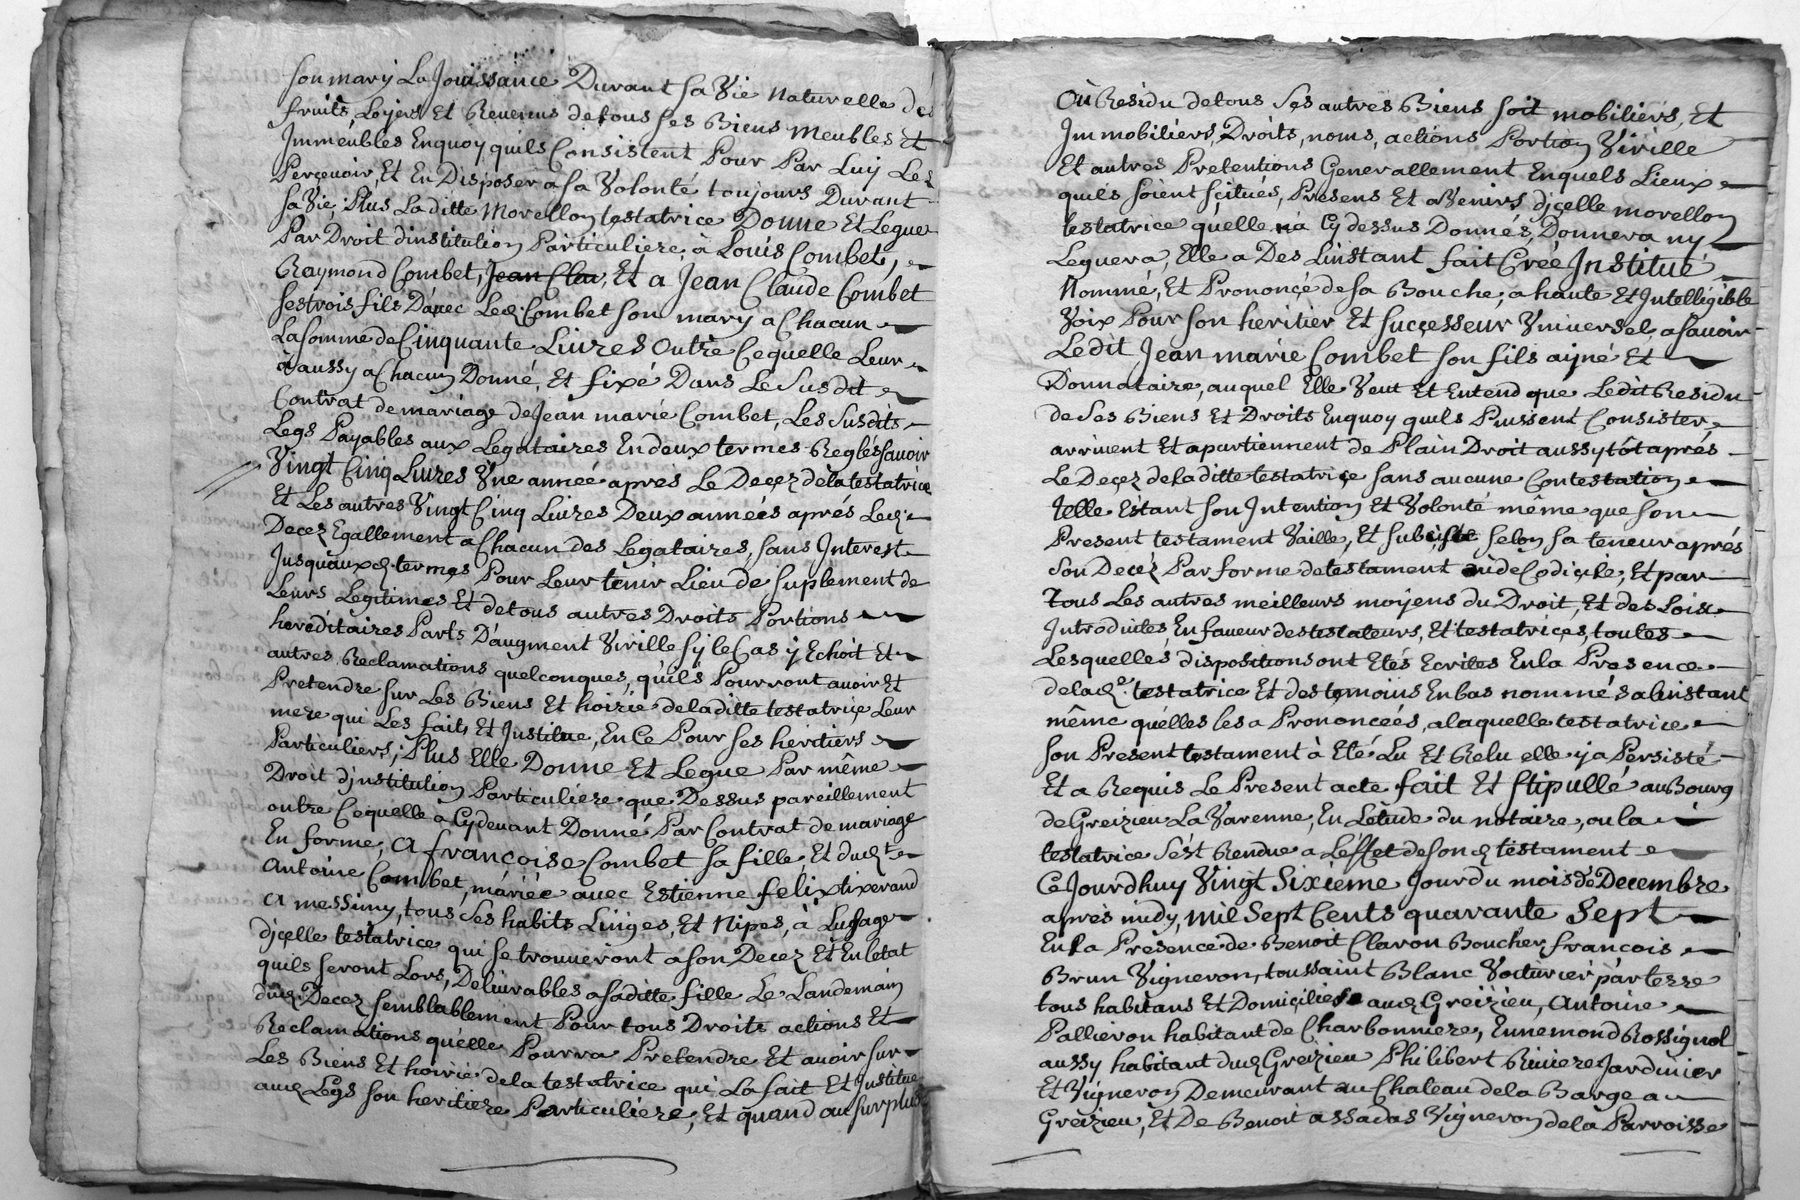 son mary La Jouissance Durant sa Vie naturelle des
fruits, Loyers Et Revenus de tous ses Biens Meubles Et
Immeubles Enquoy quils Consistent Pour Par Luy Les
Perçevoir, Et En Disposer a sa Volonté toujours Durant
sa Vie; Plus Laditte Morellon testatrice Donne Et Legue
Par Droit dinstitution Particuliere, à Louis Combet,
Raymond Combet, Jean Clau, Et a Jean Claude Combet
ses trois fils D'avec Led. Combet son mary a Chacun
La somme de Cinquante Livres Outre Cequelle Leur
à aussy a Chacun Donné, Et fixé Dans Le Susdit
Contrat de mariage de Jean marie Combet, Les Susdits
Legs Payables aux Legataires En deux termes Reglés savoir
Vingt Cinq Livres Vne année aprés Le Deçez de la testatrice
Et Les autres Vingt Cinq Livres Deux années aprés Led.
Decez Egallement a Chacun des Legataires, sans Interest
Jusquaux d. termes Pour Leur tenir Lieu de suplement de
Leurs Legitimes Et de tous autres Droits Portions
heréditaires Parts D'augment Virille sy le Cas y Echoit Et
autres Reclamations quelconques, quils Pourront avoir Et
Pretendre sur Les Biens Et hoirie de laditte testatriçe Leur
mere qui Les fait, Et Institue, En Ce Pour ses heritiers
Particuliers; Plus Elle Donne Et Legue Par même
Droit djnstitution Particuliere que Dessus pareillement
outre Cequelle a Cydevant Donné Par Contrat de mariage
En forme, a francoise Combet sa fille Et dud.t
Antoine Combet, máriée avec Estienne felix tixerand
a messimy, tous ses habits Linges, Et Nipes, à Lusage
djçelle testatrice qui se trouveront a son Decez Et En letat
quils seront Lors, Delivrables a saditte fille Le Landemain
dud. Decez semblablement Pour tous Droits actions Et
Reclamations quélle Pourra Pretendre Et avoir sur
Les Biens Et hoirie de la testatrice qui La fait Et Institue
aud. Legs son heritiere Particuliére; Et quand au surplus
Où Residu de tous ses autres Biens soit mobiliers, Et
Immobiliers, Droits, noms, actions Portion Virille
Et autres Pretentions Generallement Enquels Lieux
quils soient scitués, Présens Et aVenirs djçelle morellon
testatrice quélle nà Cy dessus Donnés, Donnera ny
Leguera, Elle a Des Linstant fait Créé Institué
Nommé, Et Prononçé de sa Bouche, a haute Et Intelligible
Voix Pour son heritier Et suççesseur Vniversel, a savoir
Ledit Jean marie Combet son fils aîné Et
Donnataire, auquel Elle Veut Et Entend que Ledit Residu
de ses Biens Et Droits Enquoy quils Puissent Consister,
arrivent Et apartiennent de Plain Droit aussytôt aprés
Le Deçez de laditte testatriçe sans aucune Contestation
telle Estant son Intention Et Volonté même que son
Present testament Vaille, Et subsiste selon sa teneur aprés
son Decéz Par forme de testament ou de Codiçile, Et par
tous Les autres meilleurs moyens du Droit, Et des Loix
Introduites En faveur des testateurs, Et testatriçes, toutes
Lesquelles dispositions ont Etés Ecrites En la Presence
de lad.e testatrice Et des temoins Enbas nommés a linstant
même quélles les a Prononceés, a laquelle testatrice
son Present testament à Eté Lu Et Relu elle y a Persisté
Et a Requis Le Present acte fait Et stipullé au Bourg
de Greizieu La Varenne, En Létude du notaire, ou la
testatrice s'ést Rendue a Léffet de son d. testament
Ce Jourdhuy Vingt Sixieme Jour du mois de Decembre
aprés midy, mil Sept Cents quarante Sept
En la Présence de Benoit Claron Boucher, francois
Brun Vigneron, toussaint Blanc Voiturier par terre
tous habitans Et Domiçiliés aud. Greizieu, Antoine
Pallieron habitant de Charbonniere, Ennemond Rossignol
aussy habitant dud. Greizieu Philibert Riviere Jardinier
Et Vigneron Demeurant au Chateau de la Barge au
Greizieu, Et De Benoit assadas Vigneron de la Parroisse